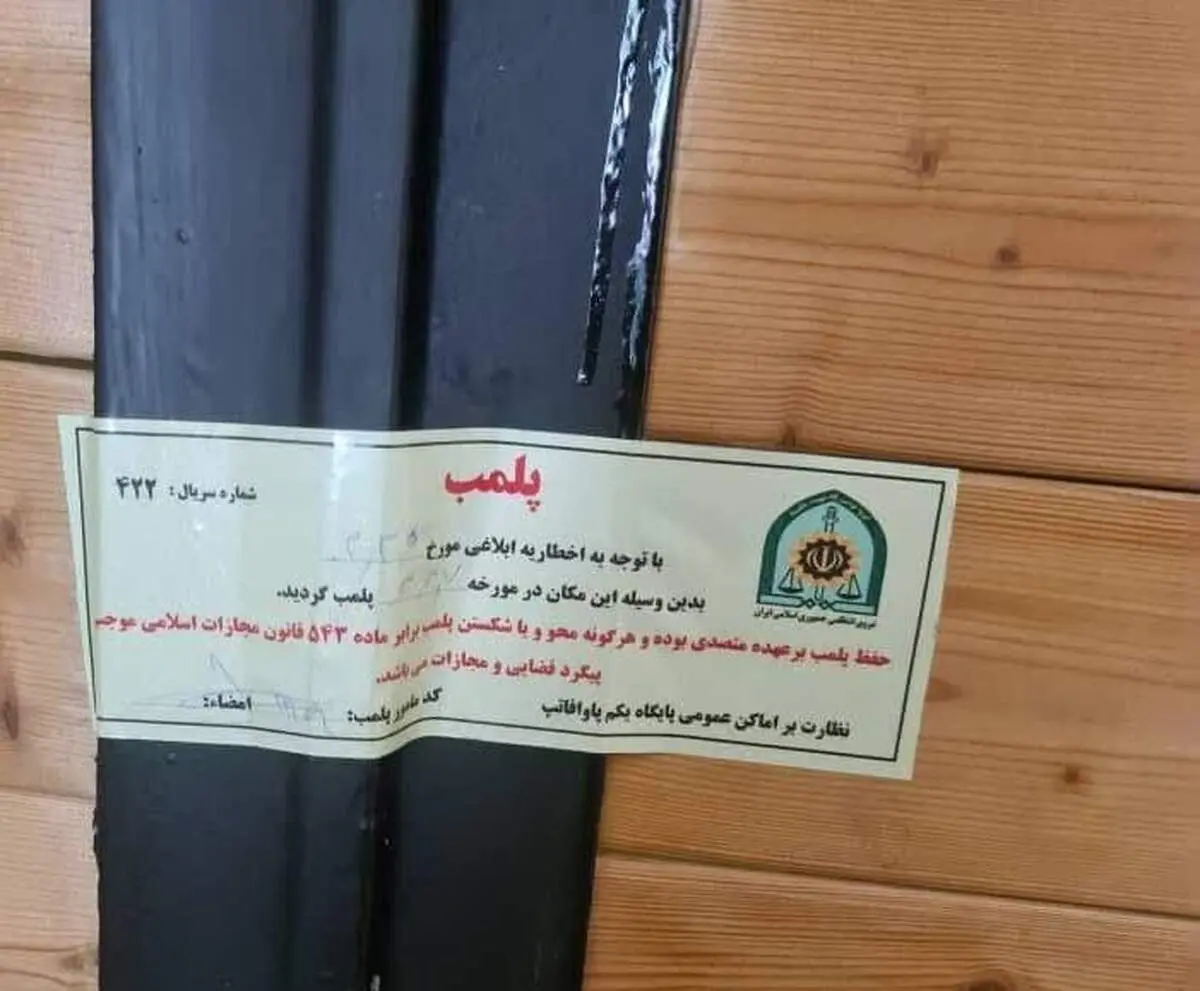 پلمب
شماره سریال: ۴۲۲
با توجه به اخطاریه ابلاغی مورخ
بدین وسیله این مکان در مورخه پلمب گردید.
حفظ پلمب بر عهده متصدی بوده و هرگونه محو و یا شکستن پلمب برابر ماده ۵۴۳ قانون مجازات اسلامی موجب
پیگرد قضایی و مجازات می باشد.
نظارت بر اماکن عمومی پایگاه یکم پاوافاتب کد مامور پلمب: امضاء:
نیروی انتظامی جمهوری اسلامی ایران